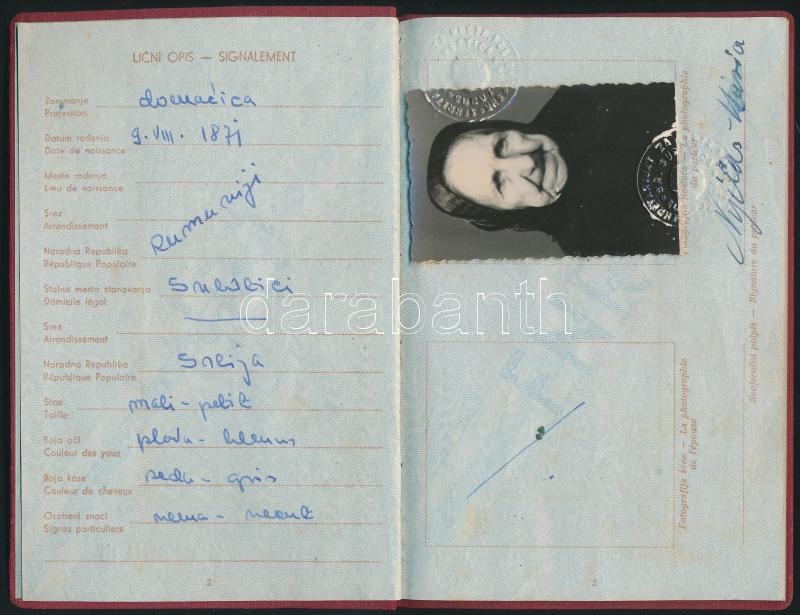 LIČNI OPIS — SIGNALEMENT
Zanimanje domaćica
Profession
Datum rođenja 9. VIII. 1871
Date de naissance
Mesto rođenja
Lieu de naissance
Srez
Arrondissement
Rumuniji
Narodna Republika
République Populaire
Stalno mesto stanovanja Subotici
Domicile légal
Srez
Arrondissement
Narodna Republika Srbija
République Populaire
Stas mali - petit
Taille
Boja očí plava - bleus
Couleur des yeux
Boja kose seda - gris
Couleur de cheveux
Osobeni znaci nema - neant
Signes particuliers
2
darabanth
Fotografija nosioca — La photographie
du porteur
Fotografija žene — La photographie
de l'épouse
Svojeručni potpis — Signature du porteur
Mária
3